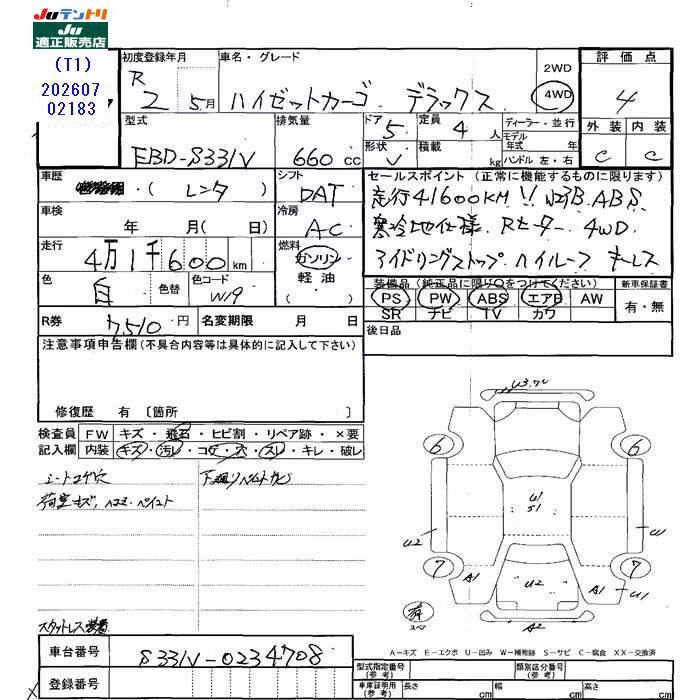 Juテントリ
Ju
適正販売店
(T1)
202607
02183
初度登録年月
R
2 5月
車名・グレード
ハイゼットカーゴ デラックス
2WD
4WD
評価点
4
外装 内装
C C
型式
EBD-S331V
排気量
660 cc
ドア
5
形状
V
定員
4 人
積載
kg
ディーラー・並行
モデル
年式 年
ハンドル 左・右
車歴
(レンタ)
シフト
DAT
車検
年 月( 日)
冷房
AC
走行
4万1千600 km
燃料
ガソリン
軽油
( )
色
白
色替
色コード
W19
R券
7,510 円
名変期限 月 日
セールスポイント (正常に機能するものに限ります)
走行41600KM!! WエアB.ABS
寒冷地仕様. Rヒーター 4WD
アイドリングストップ. ハイルーフ キーレス
装備品 (純正品に限り○をつけてください)
PS PW ABS エアB AW
SR ナビ TV カワ
新車保証書
有・無
後日品
注意事項申告欄(不具合内容等は具体的に記入して下さい)
修復歴 有 〔箇所 〕
検査員
記入欄
FW キズ・飛石・ヒビ割・リペア跡・×要
内装 キズ・汚レ・コゲ・穴・スレ・キレ・破レ
シートコゲ穴
荷室キズ、ヘコミ・ペイント
スタットレス装着
U3,W
6
6
U1
S1
U2
W
7
7
A1
U2
A1
U1
A2
有
スペア
A-キズ E-エクボ U-凹み W-補修跡 S-サビ C-腐食 XX-交換済
車台番号
S331V-0234708
登録番号
型式指定番号
(参考)
類別区分番号
(参考)
車庫証明用
(参考)
長さ cm
幅 cm
高さ cm